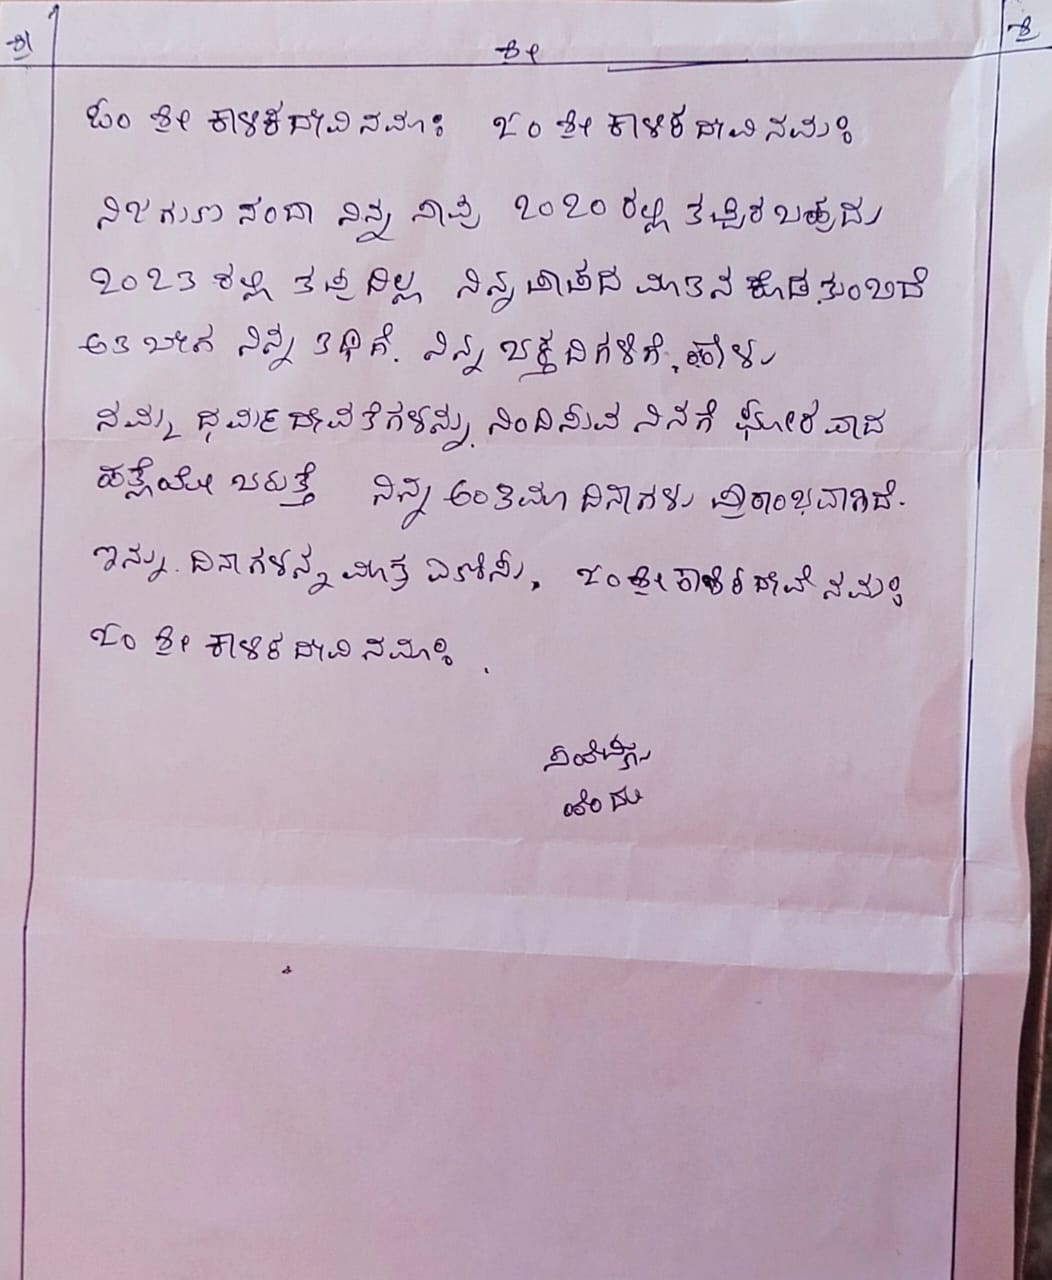 ಶ್ರೀ ಶ್ರೀ ಶ್ರೀ
ಓಂ ಶ್ರೀ ಕಾಳಿಕ ದೇವಿ ನಮಃ ಓಂ ಶ್ರೀ ಕಾಳಿಕ ದೇವಿ ನಮಃ
ನಿಜಗುಣ ನಂದಾ ನಿನ್ನ ಸಾವು 2020 ರಲ್ಲಿ ತಪ್ಪಿರಬಹುದು
2023 ರಲ್ಲಿ ತಪ್ಪದಿಲ್ಲ ನಿನ್ನ ಪಾಪದ ಕೊಡ ತುಂಬಿದೆ
ಅತಿ ಬೇಗ ನಿನ್ನ ತಿಥಿಗೆ. ನಿನ್ನ ಭಕ್ತದಿಗಳಿಗೆ. ಹೇಳು
ನಮ್ಮ ಧರ್ಮ ದೇವತೆಗಳನ್ನು ನಿಂದಿಸುವ ನಿನಗೆ ಘೋರವಾದ
ಹತ್ಯೆಯೇ ಬರುತ್ತೆ ನಿನ್ನ ಅಂತಿಮಾ ದಿನಾಗಳು ಪ್ರಾರಂಭವಾಗಿದೆ.
ಇನ್ನು. ದಿನಾಗಳನ್ನ ಮಾತ್ರ ಎಣಿಸು. ಓಂ ಶ್ರೀ ಕಾಳಿಕ ದೇವಿ ನಮಃ
ಓಂ ಶ್ರೀ ಕಾಳಿಕ ದೇವಿ ನಮಃ.